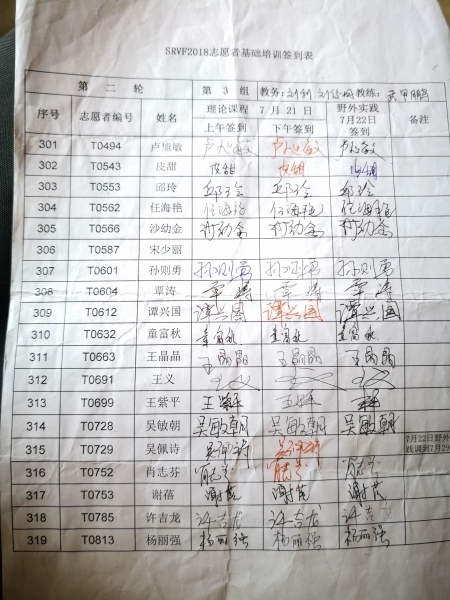 SRVF2018志愿者基础培训签到表
第二轮 第3组 教务: 教练:
序号 志愿者编号 姓名 理论课程 7月21日 野外实践 7月22日 签到 备注
上午签到 下午签到
301 T0494 卢旭敏 卢旭敏 卢旭敏 卢旭敏
302 T0543 皮甜 皮甜 皮甜 皮甜
303 T0553 邱玲 邱玲 邱玲 邱玲
304 T0562 任海艳 任海艳 任海艳 任海艳
305 T0566 沙幼金 沙幼金 沙幼金 沙幼金
306 T0587 宋少丽
307 T0601 孙则勇 孙则勇 孙则勇 孙则勇
308 T0604 覃涛 覃涛 覃涛 覃涛
309 T0612 谭兴国 谭兴国 谭兴国 谭兴国
310 T0632 童富秋 童富秋 童富秋 童富秋
311 T0663 王晶晶 王晶晶 王晶晶 王晶晶
312 T0691 王义 王义 王义 王义
313 T0699 王紫平 王紫平
314 T0728 吴敏朝 吴敏朝 吴敏朝 吴敏朝
315 T0729 吴佩诗 吴佩诗 吴佩诗 7月22日野外
践调到7月29
316 T0752 肖志芬 肖志芬 肖志芬 肖志芬
317 T0753 谢蓓 谢蓓 谢蓓 谢蓓
318 T0785 许吉龙 许吉龙 许吉龙 许吉龙
319 T0813 杨丽强 杨丽强 杨丽强 杨丽强